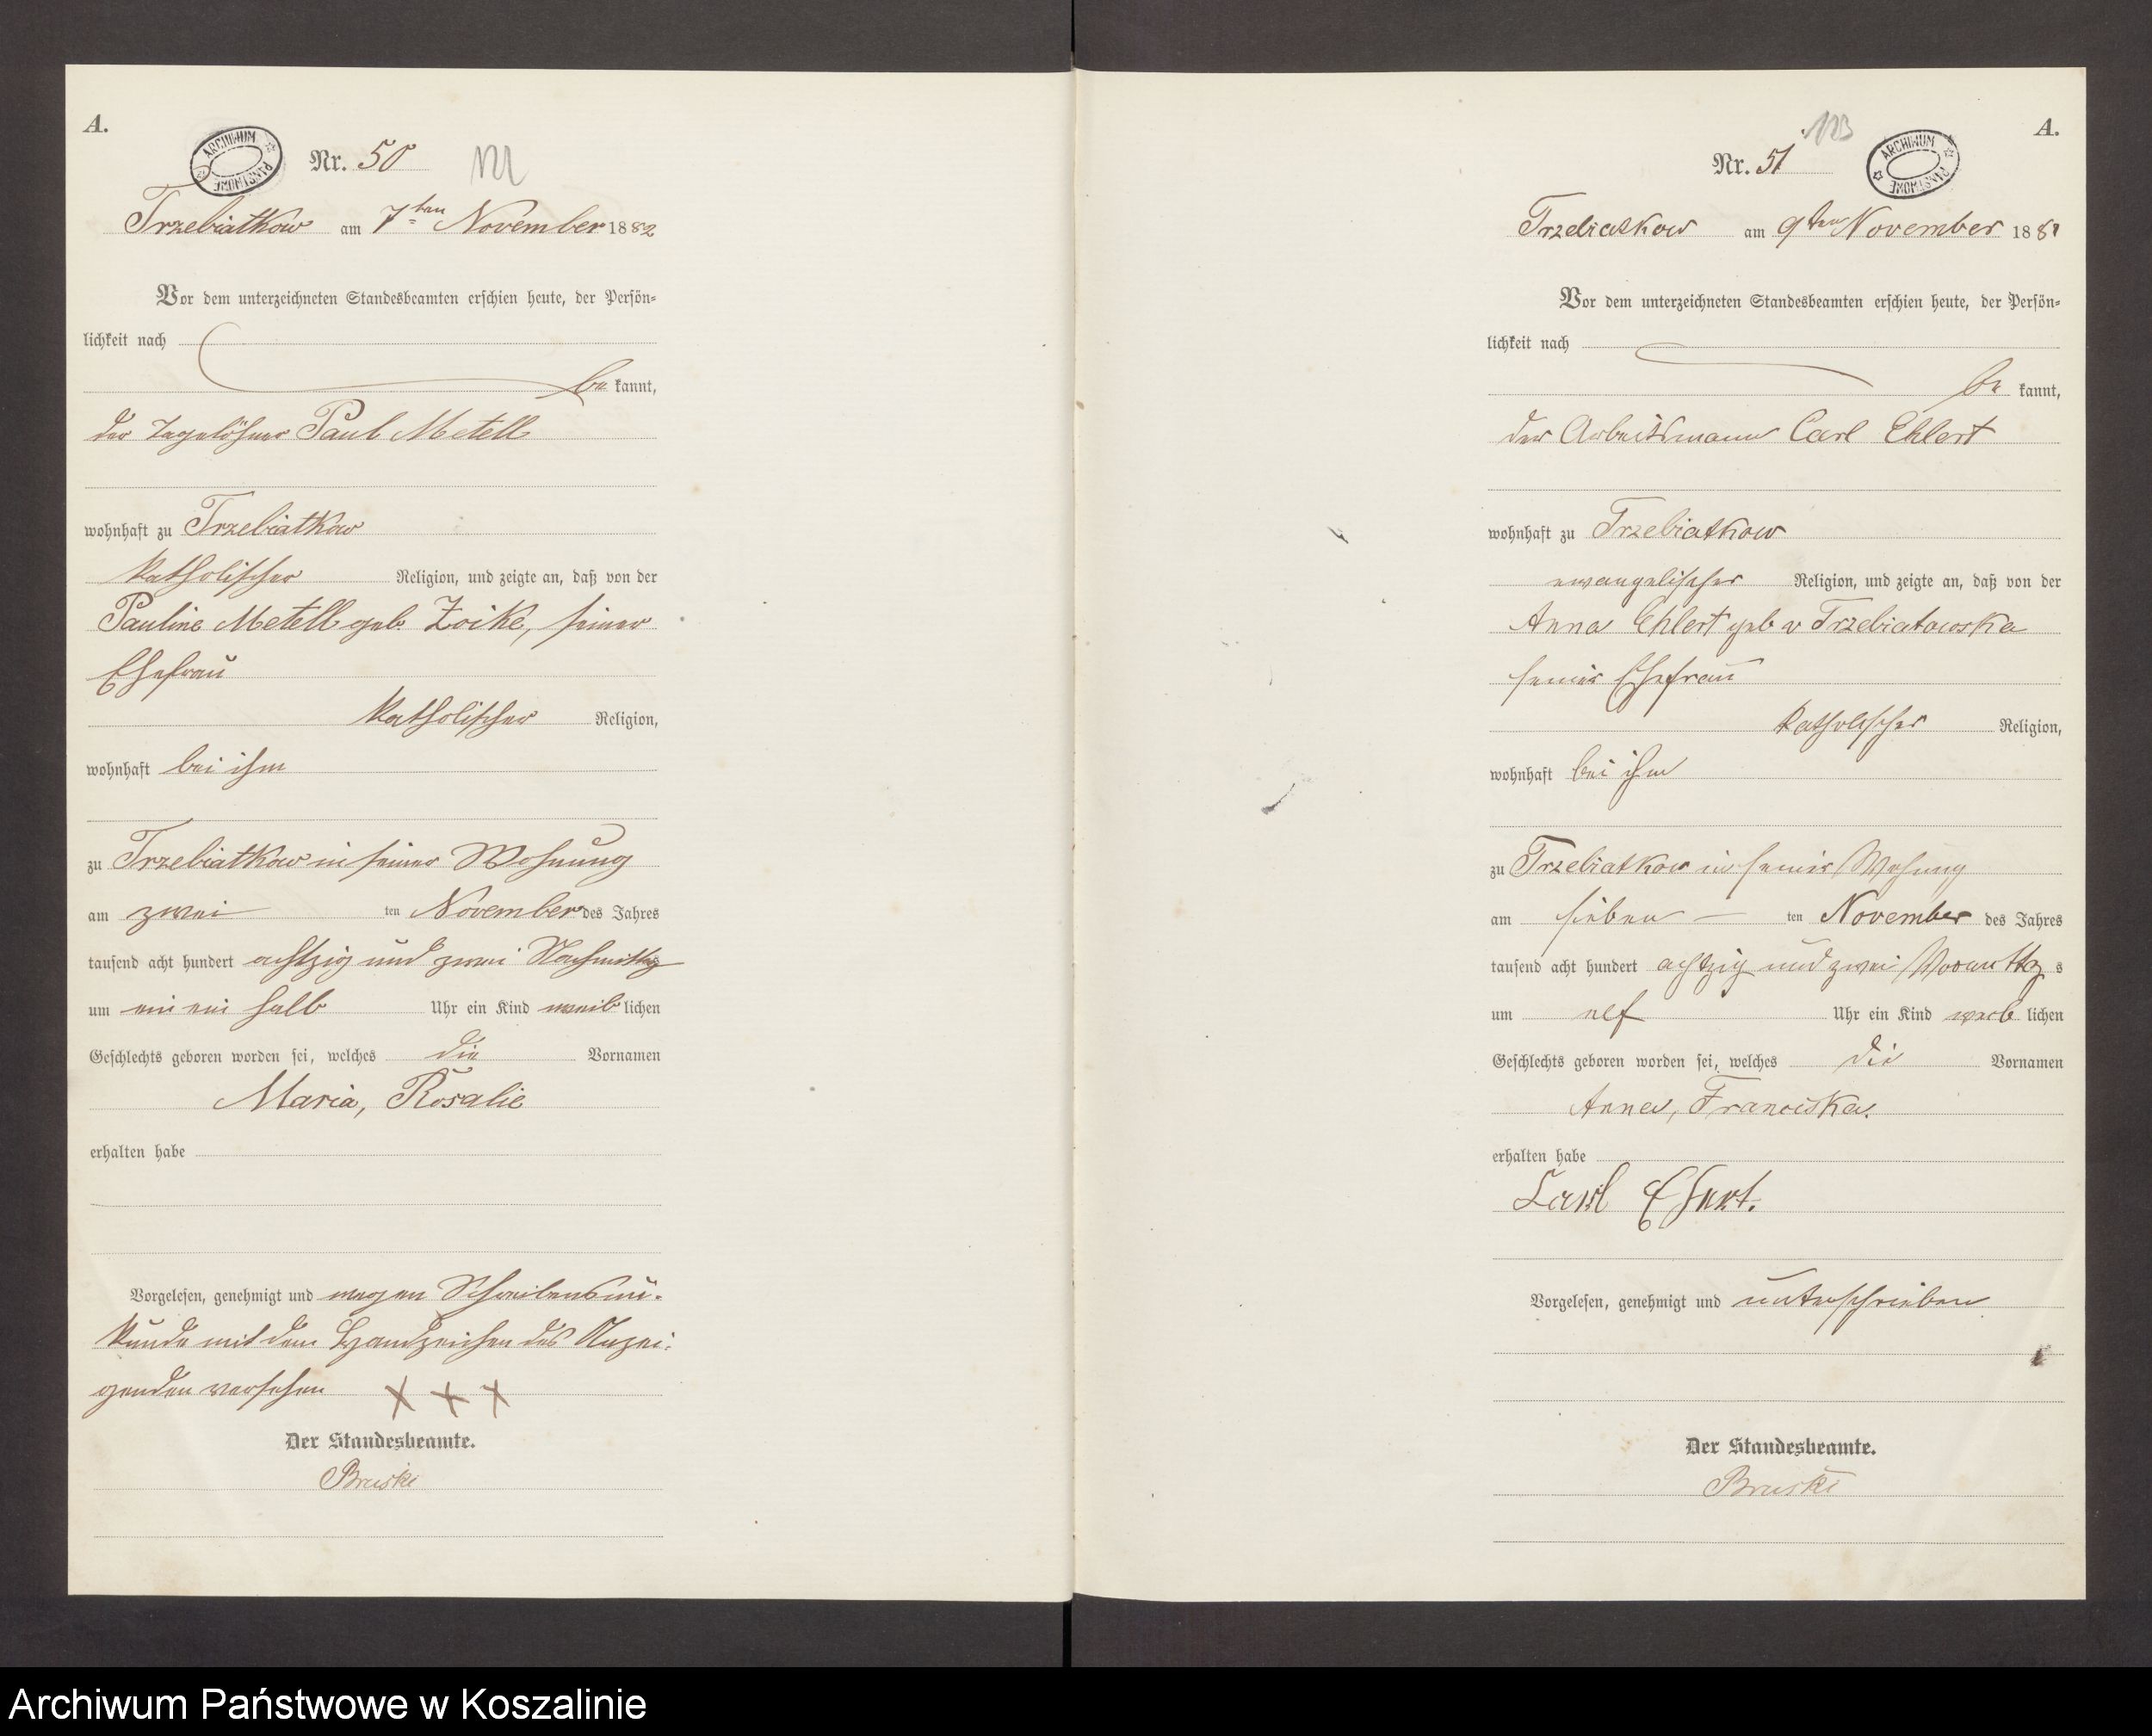 A.
ARCHIWUM PAŃSTWOWE
Nr. 50
Trzebiatkow am 7ten November 1882
Vor dem unterzeichneten Standesbeamten erschien heute, der Persön=
lichkeit nach
be kannt,
der Tagelöhner Paul Metell
wohnhaft zu Trzebiatkow
katholischer Religion, und zeigte an, daß von der
Pauline Metell geb. Zoike, seiner
Ehefrau
katholischer Religion,
wohnhaft bei ihm
zu Trzebiatkow in seiner Wohnung
am zwei ten November des Jahres
tausend acht hundert achtzig und zwei Nachmittags
um ein ein halb Uhr ein Kind weib lichen
Geschlechts geboren worden sei, welches die Vornamen
Maria, Rosalie
erhalten habe
Vorgelesen, genehmigt und wegen Schreibensun-
kunde mit dem Handzeichen des Anzei-
genden versehen XXX
Der Standesbeamte.
Bruski
123
A.
Nr. 51
ARCHIWUM PAŃSTWOWE
Trzebiatkow am 9ten November 188
Vor dem unterzeichneten Standesbeamten erschien heute, der Persön=
lichkeit nach
be kannt,
der Arbeitsmann Carl Ehlert
wohnhaft zu Trzebiatkow
ewangelischer Religion, und zeigte an, daß von der
Anna Ehlert geb v Trzebiatowska
seiner Ehefrau
katholischer Religion,
wohnhaft bei ihm
zu Trzebiatkow in seiner Wohnung
am sieben ten November des Jahres
tausend acht hundert achtzig und zwei Vormittag s
um elf Uhr ein Kind weib lichen
Geschlechts geboren worden sei, welches die Vornamen
Anna, Franciska.
erhalten habe
Carl Ehert.
Vorgelesen, genehmigt und unterschrieben
Der Standesbeamte.
Bruski
Archiwum Państwowe w Koszalinie